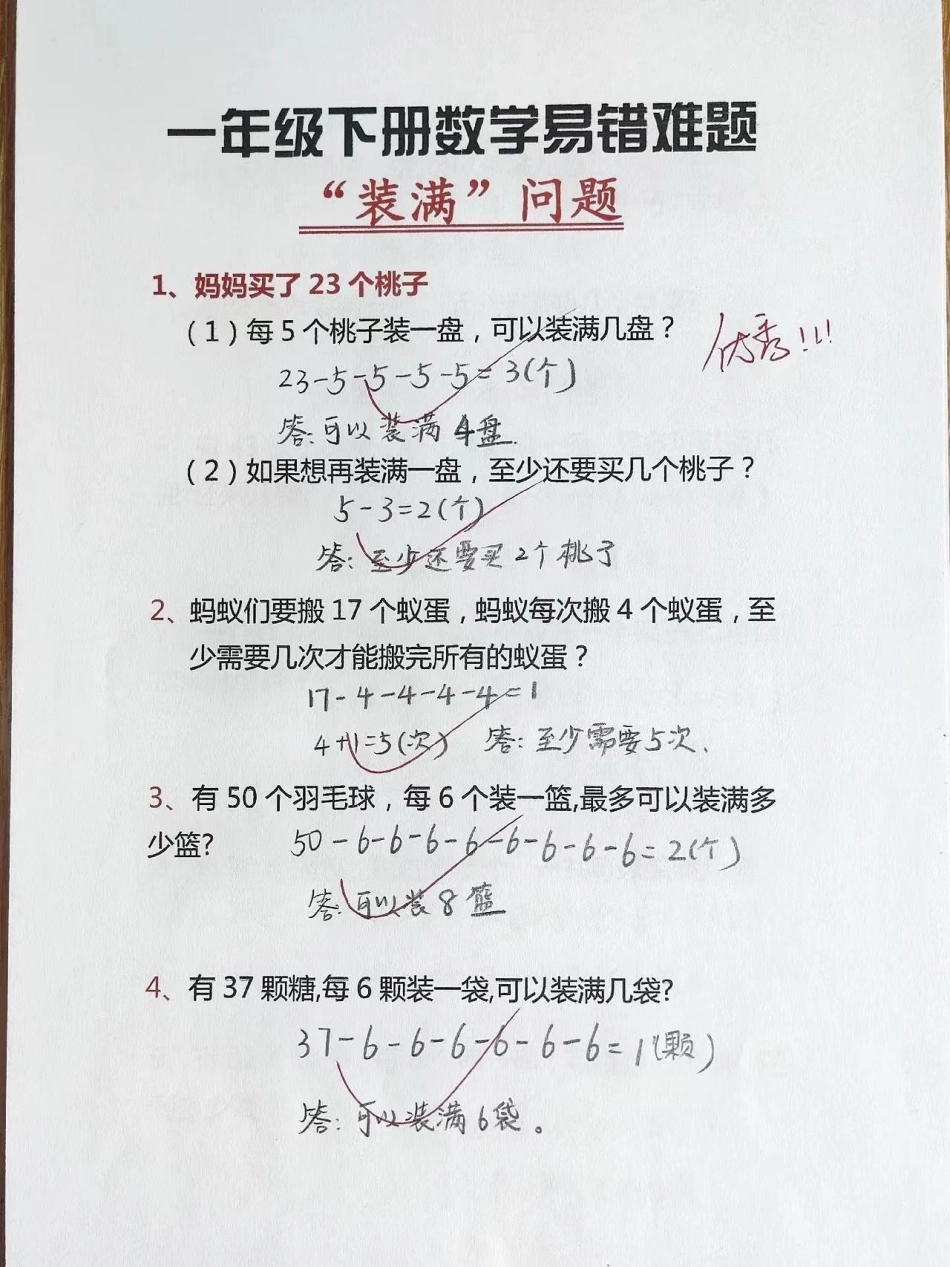 一年级下册数学易错难题
“装满”问题
1、妈妈买了 23 个桃子
（1）每 5 个桃子装一盘，可以装满几盘？
优秀!!!
23-5-5-5-5=3(个)
答:可以装满4盘.
（2）如果想再装满一盘，至少还要买几个桃子？
5-3=2(个)
答:至少还要买2个桃子
2、蚂蚁们要搬 17 个蚁蛋，蚂蚁每次搬 4 个蚁蛋，至
少需要几次才能搬完所有的蚁蛋？
17-4-4-4-4=1
4+1=5(次) 答:至少需要5次.
3、有 50 个羽毛球，每 6 个装一篮,最多可以装满多
少篮?
50-6-6-6-6-6-6-6-6=2(个)
答:可以装8篮
4、有 37 颗糖,每 6 颗装一袋,可以装满几袋?
37-6-6-6-6-6-6=1(颗)
答:可以装满6袋。